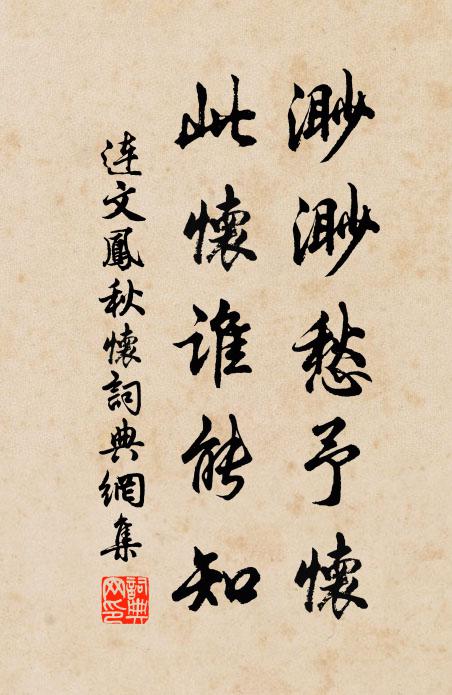 渺渺愁予懷
此懷誰能知
連文鳳秋懷詞典網集
詞典網印